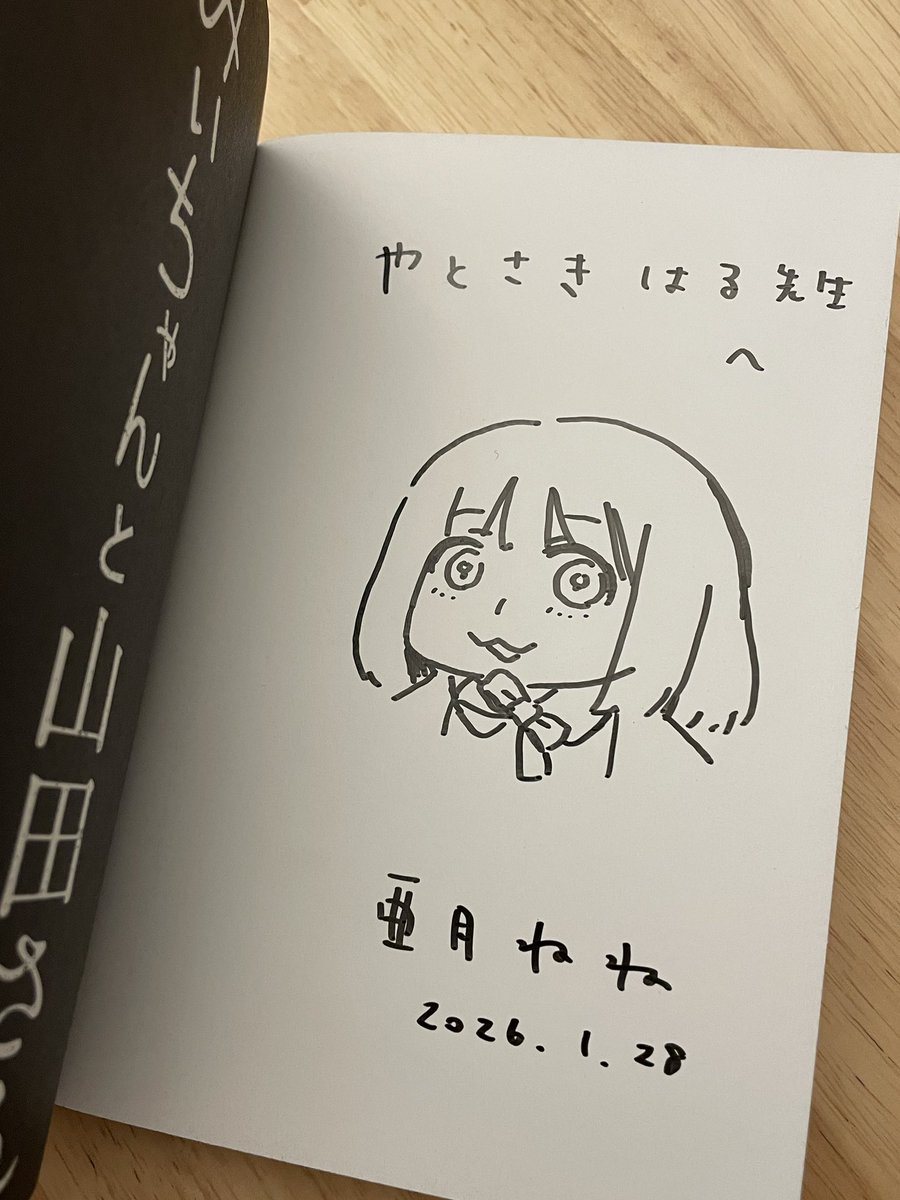 やとさき はる先生
へ
亜月ねね
2026.1.28
ちゃんと山田